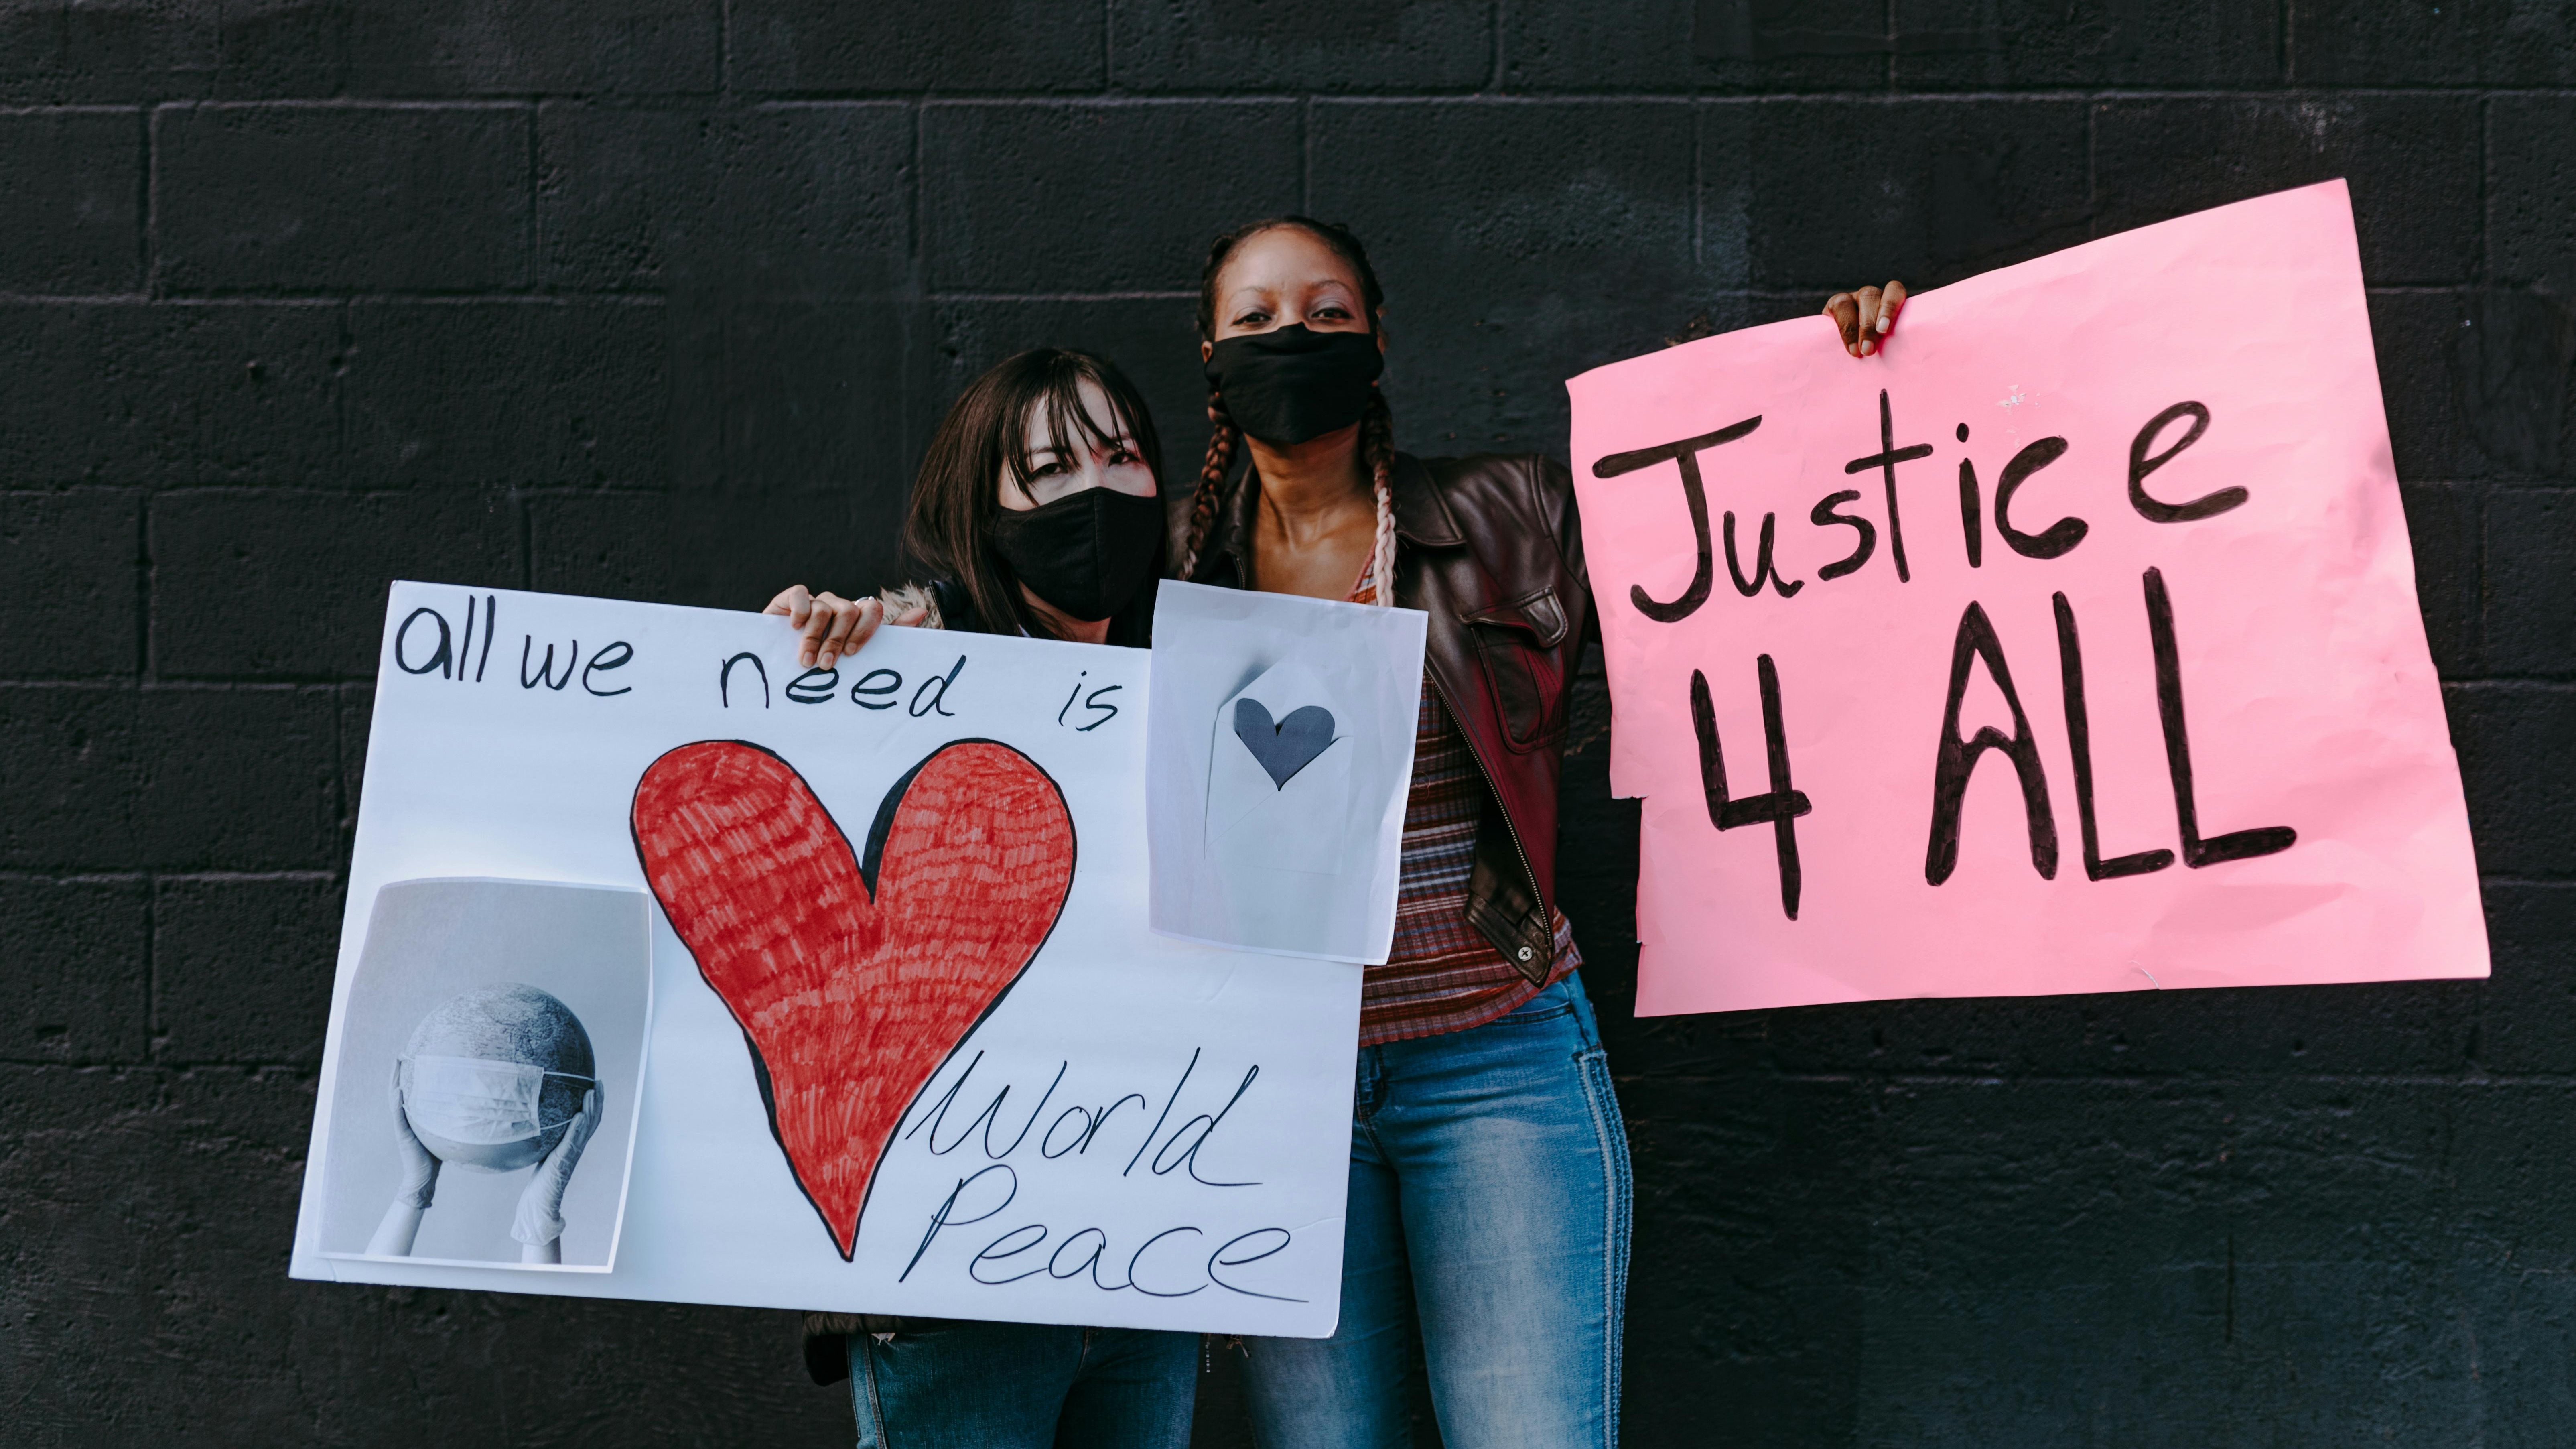 all we need is
World
Peace
Justice
4 ALL